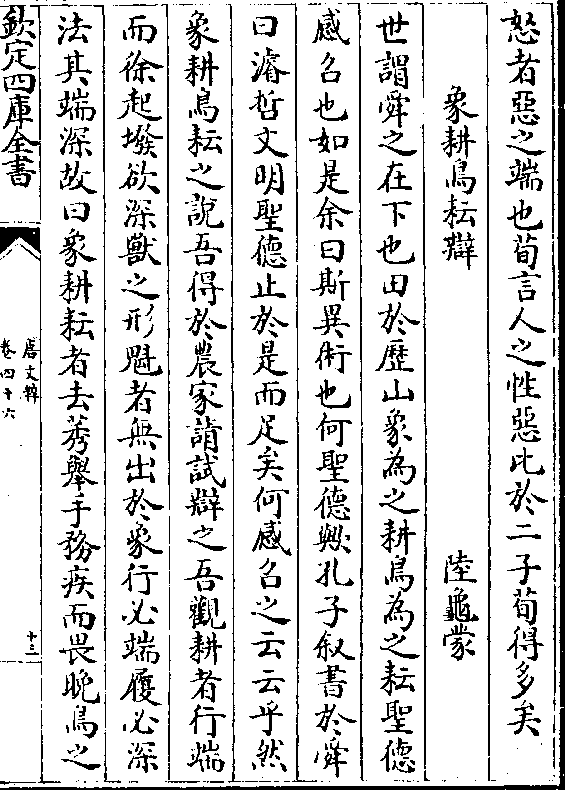 怒者惡之端也荀言人之性惡比於二子荀得多矣
象耕鳥耘辯 陸龜蒙
世謂舜之在下也田於歷山象為之耕鳥為之耘聖德
感召也如是余曰斯異術也何聖德歟孔子叙書於舜
曰濬哲文明聖德止於是而足矣何感召之云云乎然
象耕鳥耘之說吾得於農家請試辯之吾觀耕者行端
而徐起墢欲深獸之形魁者無出於象行必端履必深
法其端深故曰象耕耘者去莠舉手務疾而畏晚鳥之
欽定四庫全書
唐文粹
卷四十六
十三